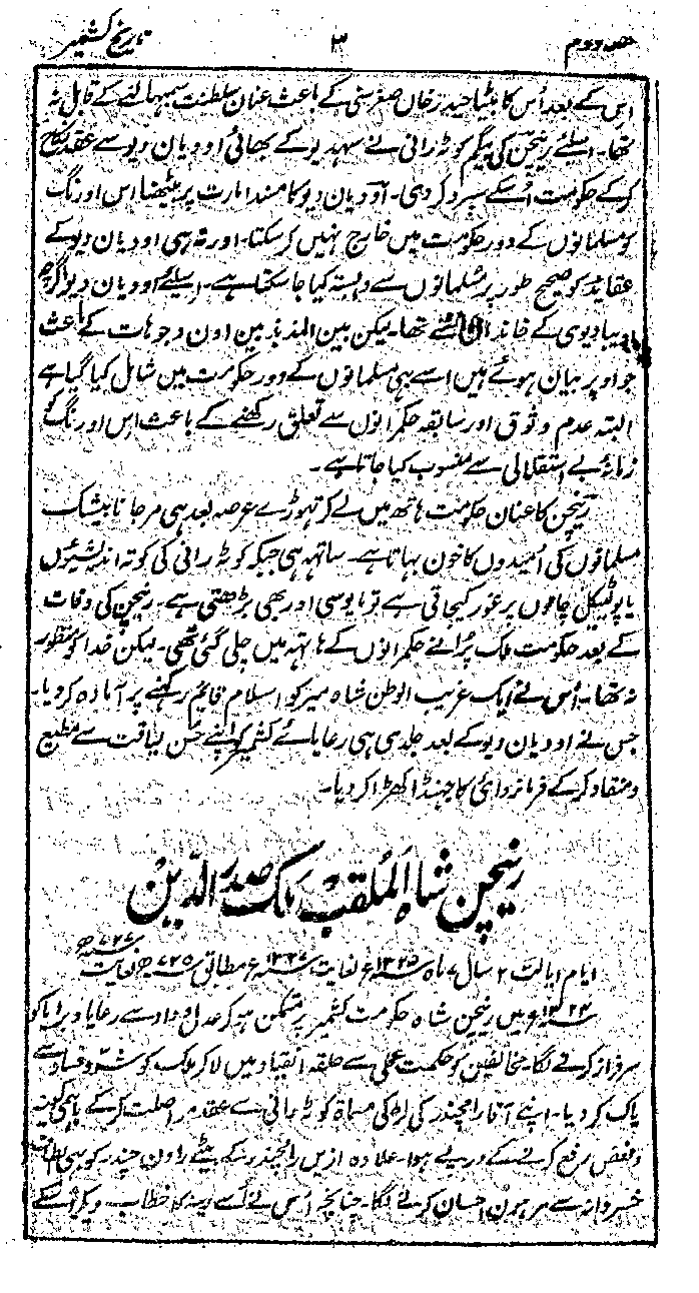 حصہ دوم ۳ تاریخ کشمیر
اس کے بعد اُس کا بیٹا حیدر خاں صغر سنی کے باعث عنان سلطنت سمبہالنے کے قابل نہ
تھا۔ اسلئے رینچن کی بیگم کوٹہ رانی نے سہدیو کے بھائی اودیان دیو سے عقد نکاح
کر کے حکومت اُسکے سپرد کر دی۔ اودیان دیو کا مسند امارت پر بیٹھنا اس اورنگ
کو مسلمانوں کے دور حکومت میں خارج نہیں کر سکتا۔ اور نہ ہی اودیان دیو کے
عقاید کو صحیح طور پر مسلمانوں سے وابستہ کیا جا سکتا ہے۔ اسلئے اودیان دیو اگرچہ
کے خاندان سے تھا۔ لیکن بین المذبذبین اون وجوہات کے باعث
جو اوپر بیان ہوئے ہیں اسے ہی مسلمانوں کے دور حکومت میں شامل کیا گیا ہے
البتہ عدم وثوق اور سابقہ حکمرانوں سے تعلق رکھنے کے باعث اس اورنگ کو
زمانۂ بے استقلالی سے منسوب کیا جاتا ہے۔
رینچن کا عنان حکومت ہاتھ میں لے کر تہوڑے عرصہ بعد ہی مر جانا بیشک
مسلمانوں کی اُمیدوں کا خون بہاتا ہے۔ ساتھ ہی جبکہ کوٹہ رانی کی کوتہ اندیشیوں
یا پولٹیکل چالوں پر غور کیجاتی ہے تو مایوسی اور بھی بڑھتی ہے۔ رینچن کی وفات
کے بعد حکومت ملک پُرانے حکمرانوں کے ہاتہہ میں چلی گئی تھی۔ لیکن خدا کو منظور
نہ تھا۔ اُس نے ایک غریب الوطن شاہ میر کو اسلام قایم رکہنے پر آمادہ کر دیا۔
جس نے اودیان دیو کے بعد جلدی ہی رعایائے کشمیر کو اپنے حُسن لیاقت سے مطیع
و منقاد کر کے فرمانروائی کا جہنڈا کھڑا کر دیا۔
رینچن شاہ المُلقب ملک صدر الدین
ایام ایالت ۲ سال ۷ ماہ ۱۳۲۵ء لغایت ۱۳۲۷ء مطابق ۷۲۵ھ لغایت ۷۲۷ھ
میں رینچن شاہ حکومت کشمیر پر متمکن ہو کر عدل و داد سے رعایا و برایا کو
سرفراز کرنے لگا۔ مخالفین کو حکمت عملی سے حلقہ انقیاد میں لا کر ملک کو شر و فساد سے
پاک کر دیا۔ اپنے آقا رامچندر کی لڑکی مسماۃ کوٹہ رانی سے عقد مواصلت کر کے باہمی کینہ
و بغض رفع کرنے کے درپے ہوا۔ علاوہ ازیں رامچندر کے بیٹے راون چندر کو بھی الطاف
خسروانہ سے مرہون احسان کرنے لگا۔ چنانچہ اُس نے اُسے رینہ کا خطاب دیکر اُسکے